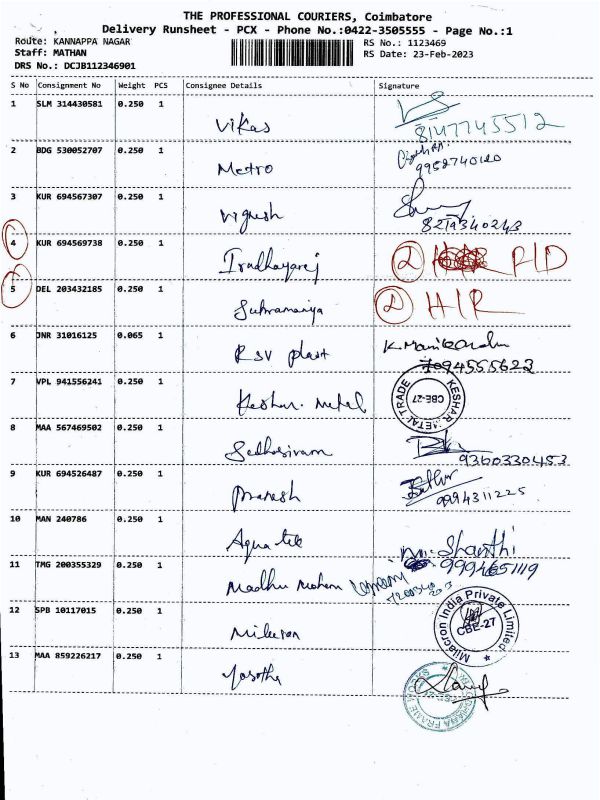 THE PROFESSIONAL COURIERS, Coimbatore
Delivery Runsheet - PCX - Phone No.:0422-3505555 - Page No.:1
Route: KANNAPPA NAGAR RS No.: 1123469
Staff: MATHAN RS Date: 23-Feb-2023
DRS No.: DCJB112346901
S No Consignment No Weight PCS Consignee Details Signature
1 SLM 314430581 0.250 1
Vikas 8147745512
2 BDG 530052707 0.250 1
Metro 9952740120
3 KUR 694567307 0.250 1
Vignesh 8219340243
4 KUR 694569738 0.250 1
Irudhayaraj 2 PID
5 DEL 203432185 0.250 1
Subramaniya 2 HIR
6 JNR 31016125 0.065 1
RSV plast K. Manikandan
7094555623
7 VPL 941556241 0.250 1
Keshar. Metal KESHAR METAL TRADE CBE-27
8 MAA 567469502 0.250 1
Sadhasivam 9360330453
9 KUR 694526487 0.250 1
Pranesh 9994311225
10 MAN 240786 0.250 1
Aqua tek Shanthi
11 TMG 200355329 0.250 1 9994651119
Madhu Mohan
12 SPB 10117015 0.250 1
Milacron Milacron India Private Limited CBE-27
13 MAA 859226217 0.250 1
Yasotha FRAME WORKS